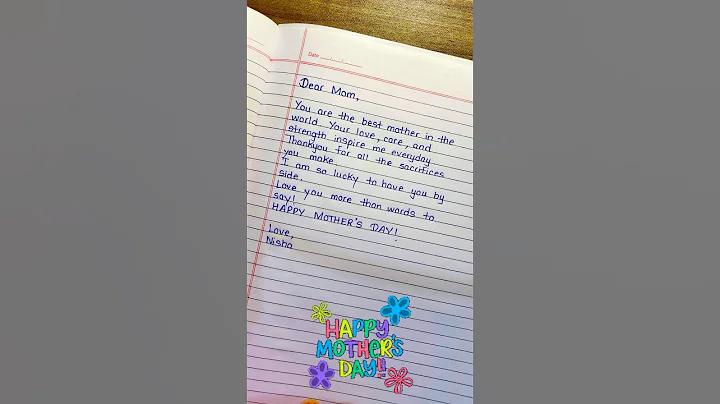 Date
Dear Mom,
You are the best mother in the
world. Your love, care, and
strength inspire me everyday.
Thankyou for all the sacrifices
you make.
I am so lucky to have you by
side.
Love you more than words to
say!
HAPPY MOTHER'S DAY!
Love,
Nisha
HAPPY
MOTHER'S
DAY!!